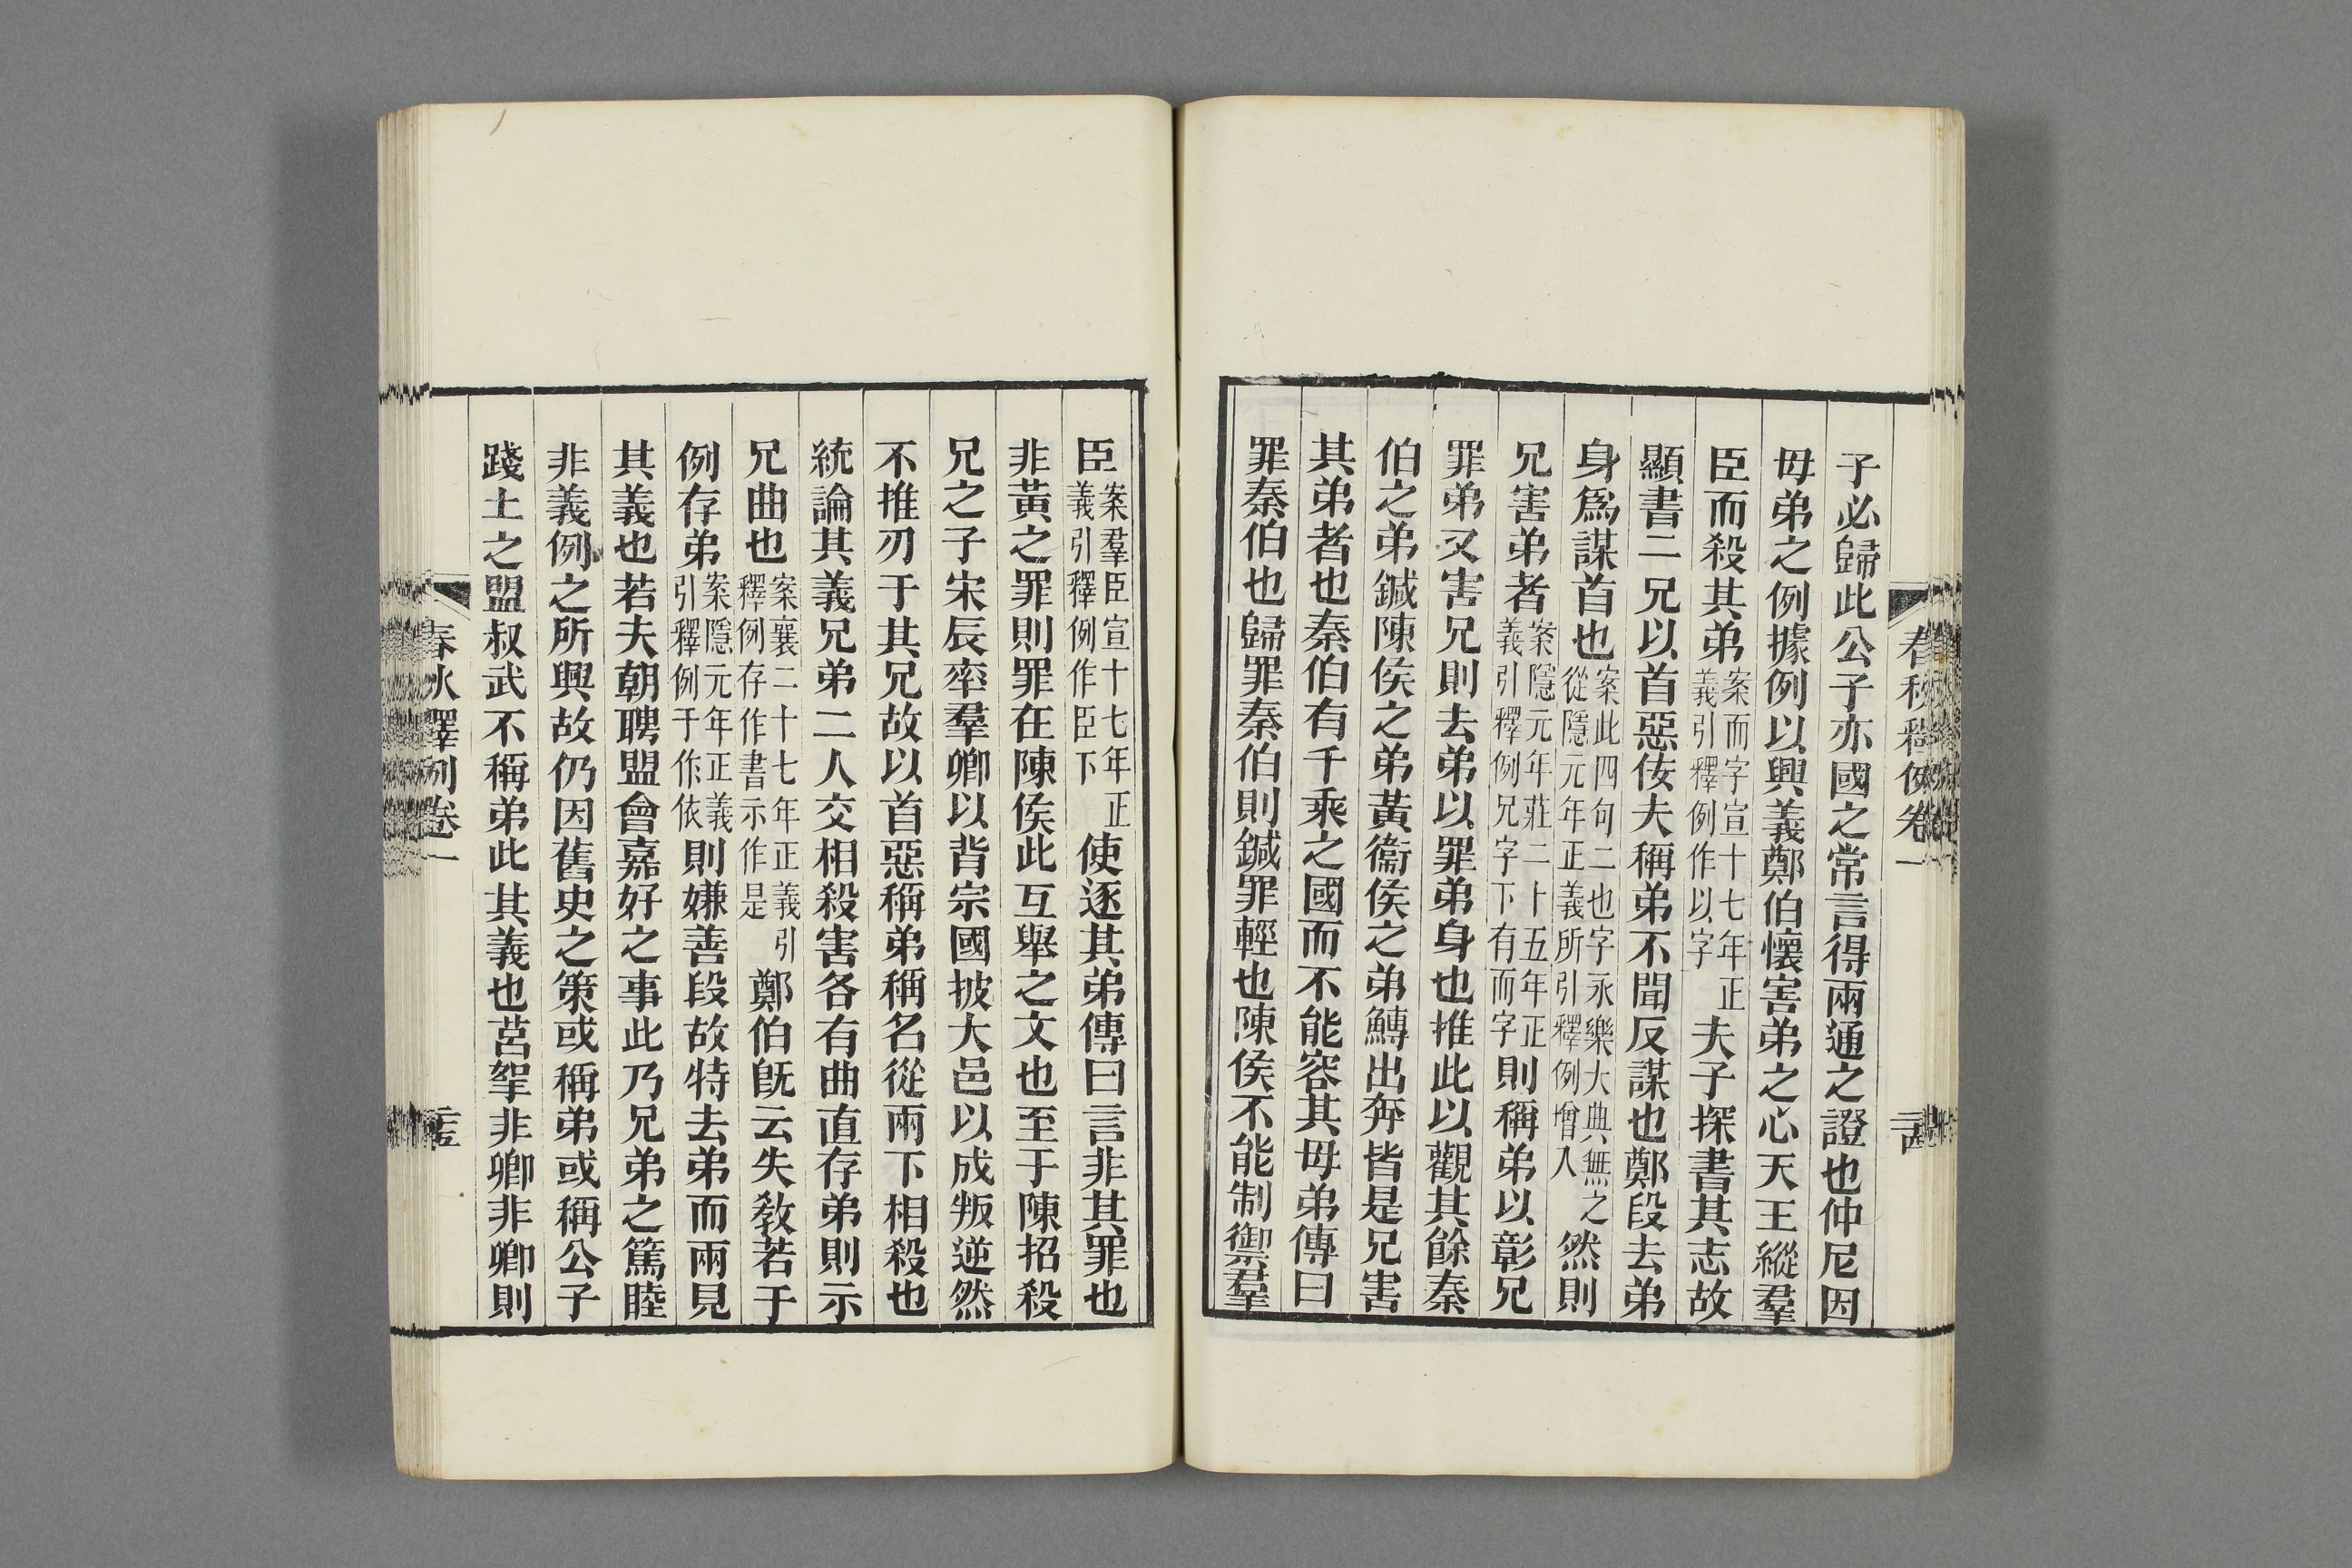 春秋釋例卷一
二十四
子必歸此公子亦國之常言得兩通之證也仲尼因
母弟之例據例以興義鄭伯懷害弟之心天王縱羣
臣而殺其弟案而字宣十七年正義引釋例作以字夫子探書其志故
顯書二兄以首惡佞夫稱弟不聞反謀也鄭段去弟
身爲謀首也案此四句二也字永樂大典無之從隱元年正義所引釋例增入然則
兄害弟者案隱元年莊二十五年正義引釋例兄字下有而字則稱弟以彰兄
罪弟又害兄則去弟以罪弟身也推此以觀其餘秦
伯之弟鍼陳侯之弟黃衞侯之弟鱄出奔皆是兄害
其弟者也秦伯有千乘之國而不能容其母弟傳曰
罪秦伯也歸罪秦伯則鍼罪輕也陳侯不能制禦羣
臣案羣臣宣十七年正義引釋例作臣下使逐其弟傳曰言非其罪也
非黃之罪則罪在陳侯此互舉之文也至于陳招殺
兄之子宋辰率羣卿以背宗國披大邑以成叛逆然
不推刃于其兄故以首惡稱弟稱名從兩下相殺也
統論其義兄弟二人交相殺害各有曲直存弟則示
兄曲也案襄二十七年正義引釋例存作書示作是鄭伯旣云失敎若于
例存弟案隱元年正義引釋例于作依則嫌善段故特去弟而兩見
其義也若夫朝聘盟會嘉好之事此乃兄弟之篤睦
非義例之所興故仍因舊史之策或稱弟或稱公子
踐土之盟叔武不稱弟此其義也莒挐非卿非卿則
春秋釋例卷一
二十五